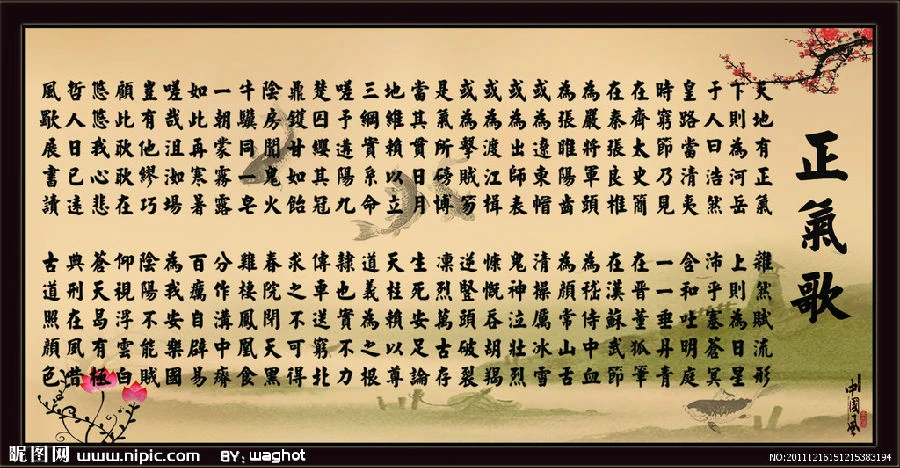 正氣歌
天地有正氣 雜然賦流形
下則為河岳 上則為日星
于人曰浩然 沛乎塞蒼冥
皇路當清夷 含和吐明庭
時窮節乃見 一一垂丹青
在齊太史簡 在晉董狐筆
在秦張良椎 在漢蘇武節
為嚴將軍頭 為嵇侍中血
為張睢陽齒 為顏常山舌
或為遼東帽 清操厲冰雪
或為出師表 鬼神泣壯烈
或為渡江楫 慷慨吞胡羯
或為擊賊笏 逆豎頭破裂
是氣所磅博 凜烈萬古存
當其貫日月 生死安足論
地維賴以立 天柱賴以尊
三綱實系命 道義為之根
嗟予遘陽九 隸也實不力
楚囚纓其冠 傳車送窮北
鼎鑊甘如飴 求之不可得
陰房闃鬼火 春院閟天黑
牛驥同一皂 雞棲鳳凰食
一朝蒙霧露 分作溝中瘠
如此再寒暑 百癘自辟易
嗟哉沮洳場 為我安樂國
豈有他繆巧 陰陽不能賊
顧此耿耿在 仰視浮雲白
悠悠我心悲 蒼天曷有極
哲人日已遠 典刑在夙昔
風展書讀 古道照顏色
中國風
昵图网 www.nipic.com BY: waghot
NO:20111216151215383194